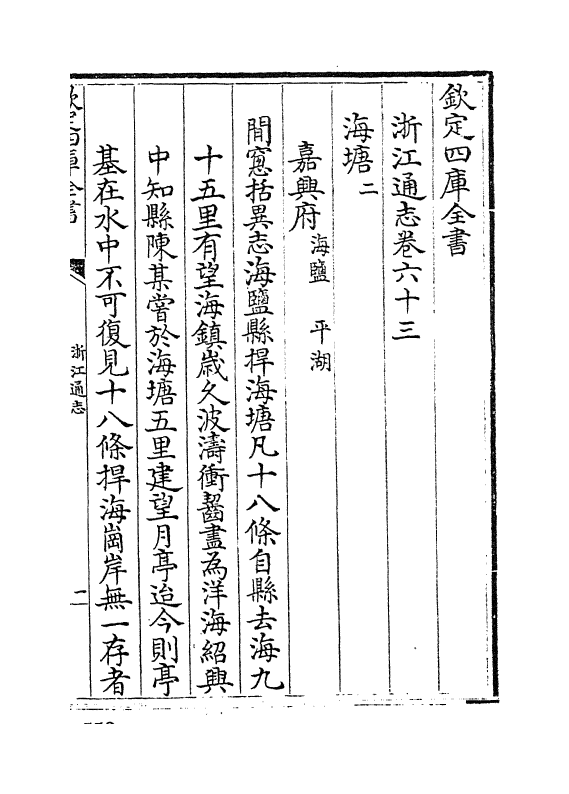 欽定四庫全書
浙江通志卷六十三
海塘二
嘉興府 海鹽 平湖
閒窻括異志海鹽縣捍海塘凡十八條自縣去海九
十五里有望海鎮歲久波濤衝齧盡為洋海紹興
中知縣陳某嘗於海塘五里建望月亭迨今則亭
基在水中不可復見十八條捍海崗岸無一存者
欽定四庫全書
浙江通志
二